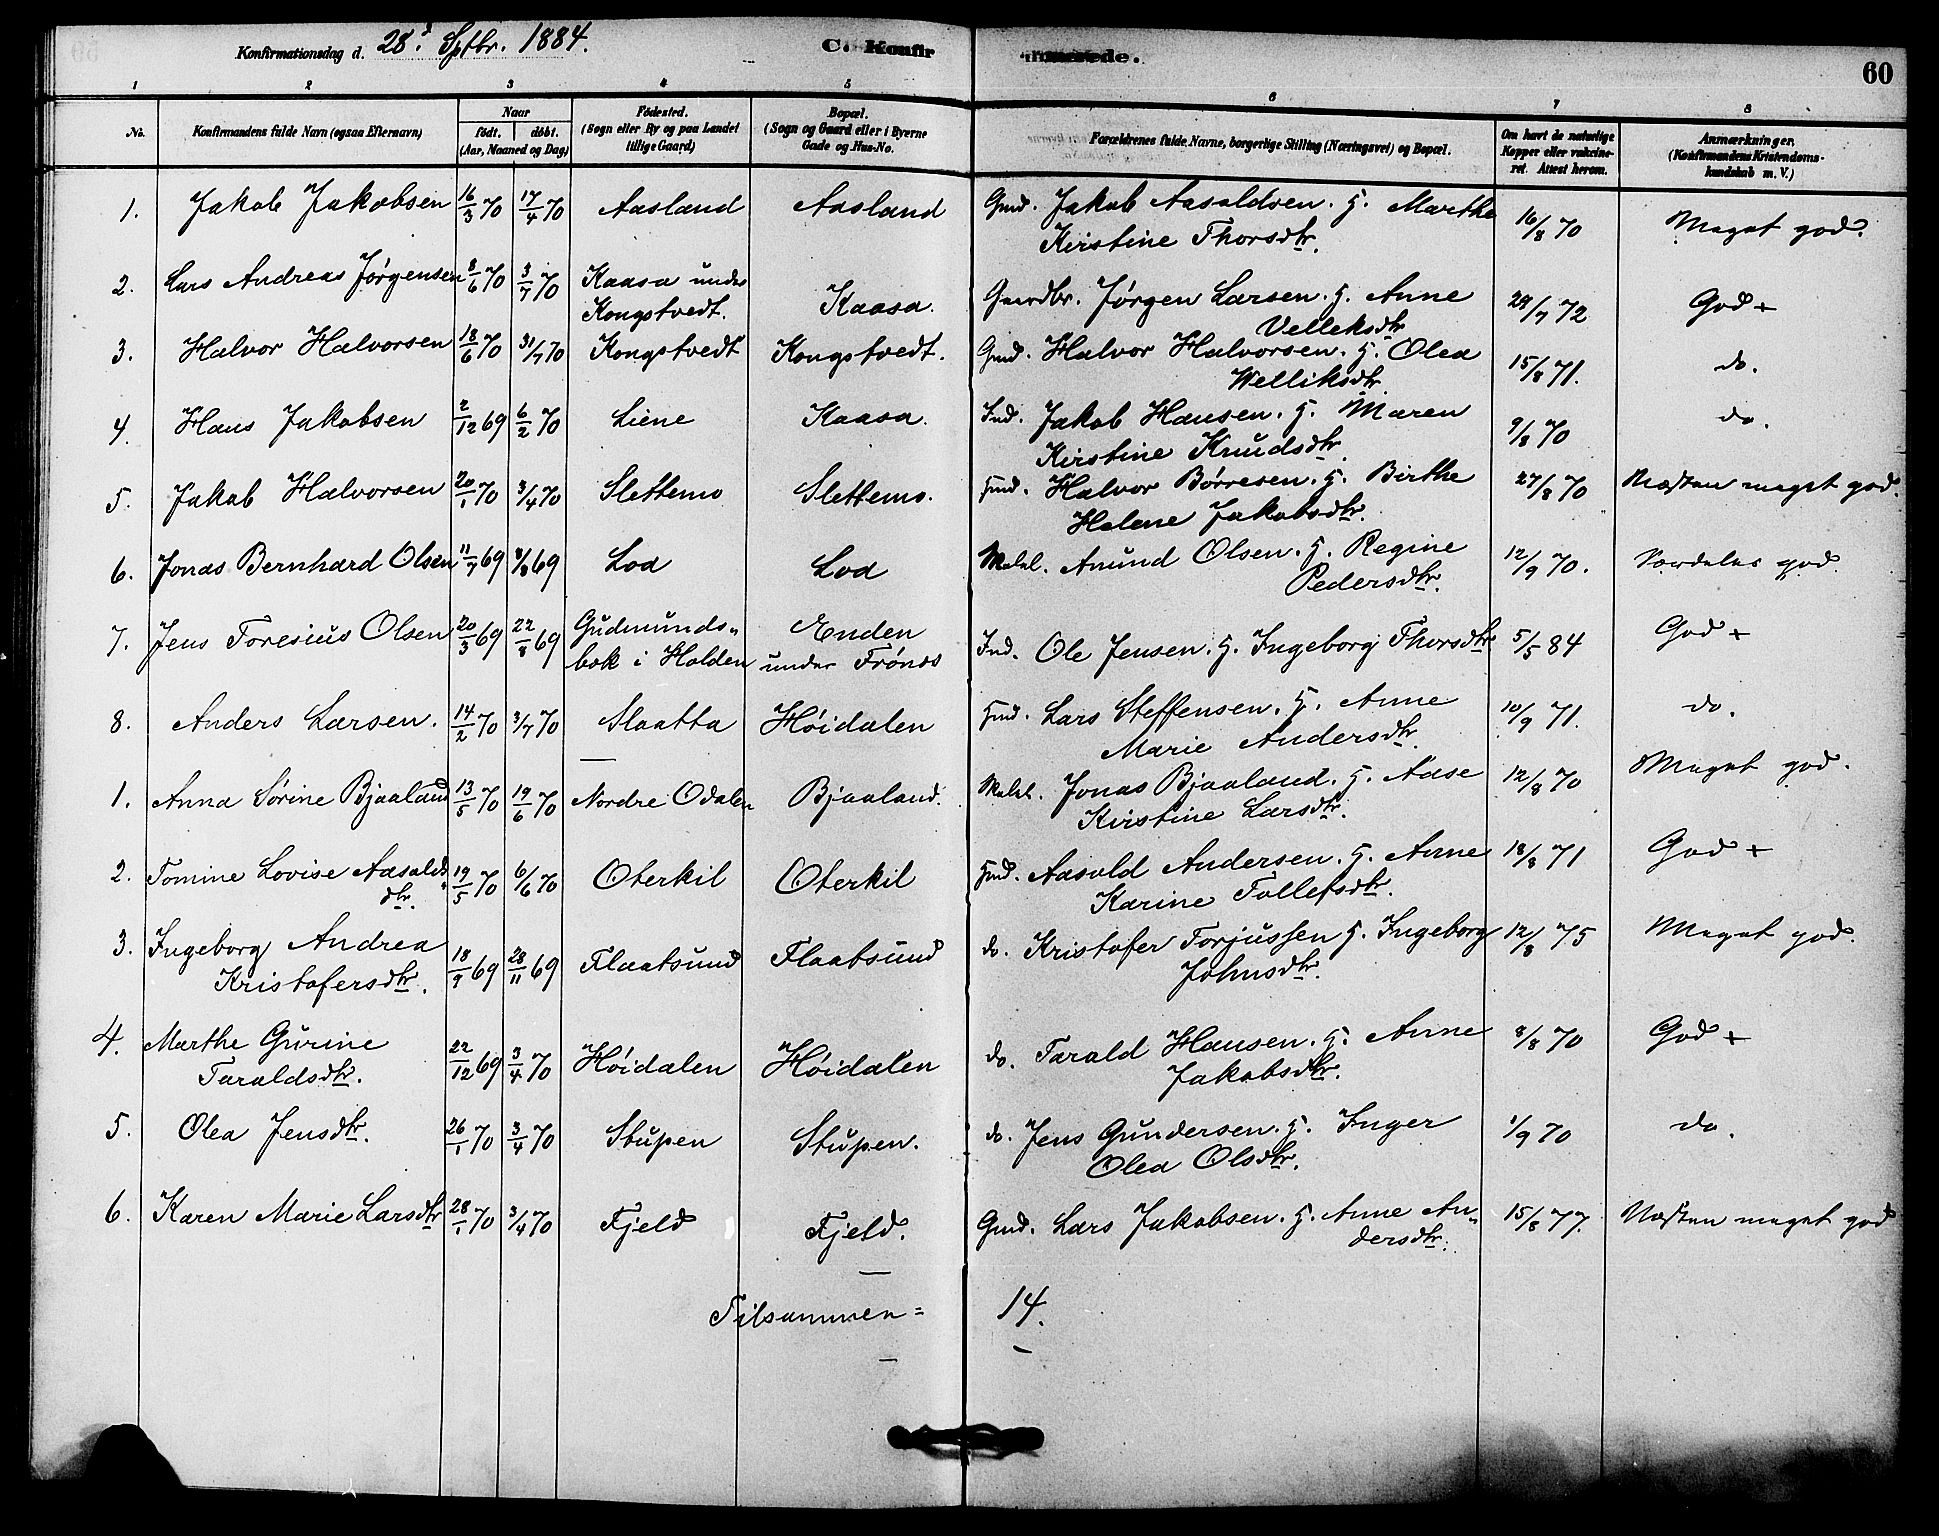 Konfirmationsdag d. 28.d Sptbr. 1884. C. Konfirmerede. 60
1 2 3 4 5 6 7 8
No. Konfirmandens fulde Navn (ogsaa Efternavn) Naar født. døbt. (Aar, Maaned og Dag) Fødested. (Sogn eller By og paa Landet tillige Gaard) Bopæl. (Sogn og Gaard eller i Byerne Gade og Hus-No. Forældrenes fulde Navne, borgerlige Stilling (Næringsvei) og Bopæl. Om havt de naturlige Kopper eller vakcineret. Attest herom. Anmærkninger. (Konfirmandens Kristendomskundskab m. V.)
1. Jakob Jakobsen 16/3 70 17/4 70 Aasland Aasland Gmd. Jakob Aasoldsen. H. Marthe 16/8 70 Meget god.
Kirstine Thorsdtr.
2. Lars Andreas Jørgensen 8/6 70 3/7 70 Kaasa under Kaasa. Gaardbr. Jørgen Larsen. H. Anne 29/7 72 God +
Kongstvedt. Velleksdtr
3. Halvor Halvorsen 18/6 70 31/7 70 Kongstvedt Kongstvedt. Gmd. Halvor Halvorsen. H. Olea 15/8 71. do.
Welliksdtr
4. Hans Jakobsen 2/12 69 6/2 70 Liene Kaasa. Ind. Jakob Hansen. H. Maren 9/8 70 do.
Kirstine Knudsdtr.
5. Jakob Halvorsen 20/1 70 3/4 70 Slettemo Slettemo. Hmd. Halvor Børresen. H. Birthe 27/8 70 Næsten meget god.
Helene Jakobsdtr.
6. Jonas Bernhard Olsen 11/7 69 8/8 69 Loa Loa Anund Olsen. H. Regine 12/9 70. Særdeles god.
Pedersdtr.
7. Jens Toresius Olsen 20/3 69 22/8 69 Gudmunds- Enden Ind. Ole Jensen. H. Ingeborg Thorsdtr 5/5 84 God +
bæk i Holden under Frønæs
8. Anders Larsen. 14/2 70 3/7 70 Slaatta Høidalen Hmd. Lars Steffensen. H. Anne 10/9 71. do.
Marie Andersdtr.
1. Anna Sørine Bjaaland 13/5 70 19/6 70 Nordre Odalen Bjaaland. Jonas Bjaaland. H. Aase 12/8 70 Meget god.
Kirstine Larsdtr.
2. Tomine Lovise Aasolds- 19/5 70 6/6 70 Oterkil Oterkil Hmd. Aasold Andersen. H. Anne 18/8 71 God +
dtr. Karine Tollefsdtr.
3. Ingeborg Andrea 18/9 69 28/11 69 Flaatsund Flaatsund do. Kristofer Torjussen H. Ingeborg 12/8 75 Meget god.
Kristofersdtr. Johnsdtr.
4. Marthe Gurine 22/12 69 3/4 70 Høidalen Høidalen do. Tarald Hansen. H. Anne 8/8 70 God +
Taraldsdtr. Jakobsdtr.
5. Olea Jensdtr. 26/1 70 3/4 70 Stupen Stupen. do. Jens Gundersen. H. Inger 1/9 70 do.
Olea Olsdtr.
6. Karen Marie Larsdtr 28/1 70 3/4 70 Fjeld Fjeld. Gmd. Lars Jakobsen. H. Anne An- 15/8 77. Næsten meget god
dersdtr.
Tilsammen = 14.